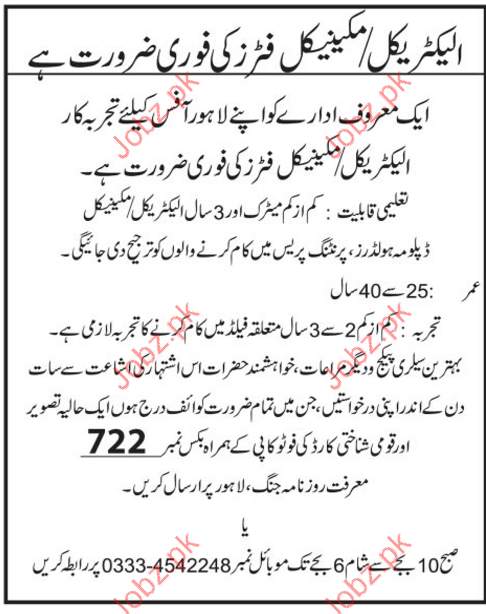 الیکٹریکل/مکینیکل فٹرز کی فوری ضرورت ہے
ایک معروف ادارے کو اپنے لاہور آفس کیلئے تجربہ کار
الیکٹریکل/مکینیکل فٹرز کی فوری ضرورت ہے۔
تعلیمی قابلیت : کم از کم میٹرک اور 3 سال الیکٹریکل/مکینیکل
ڈپلومہ ہولڈرز، پرنٹنگ پریس میں کام کرنے والوں کو ترجیح دی جائیگی۔
عمر :25 سے 40 سال
تجربہ : کم از کم 2 سے 3 سال متعلقہ فیلڈ میں کام کرنے کا تجربہ لازمی ہے۔
بہترین سیلری پیکج و دیگر مراعات، خواہشمند حضرات اس اشتہار کی اشاعت سے سات
دن کے اندر اپنی درخواستیں، جن میں تمام ضرورت کوائف درج ہوں ایک حالیہ تصویر
اور قومی شناختی کارڈ کی فوٹو کاپی کے ہمراہ بکس نمبر 722
معرفت روزنامہ جنگ، لاہور پر ارسال کریں۔
یا
صبح 10 بجے سے شام 6 بجے تک موبائل نمبر 0333-4542248 پر رابطہ کریں
Jobz.pk
Jobz.pk
Jobz.pk
Jobz.pk
Jobz.pk
Jobz.pk